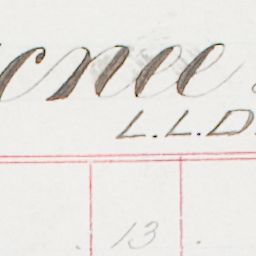 cnee
L.L.D.
13